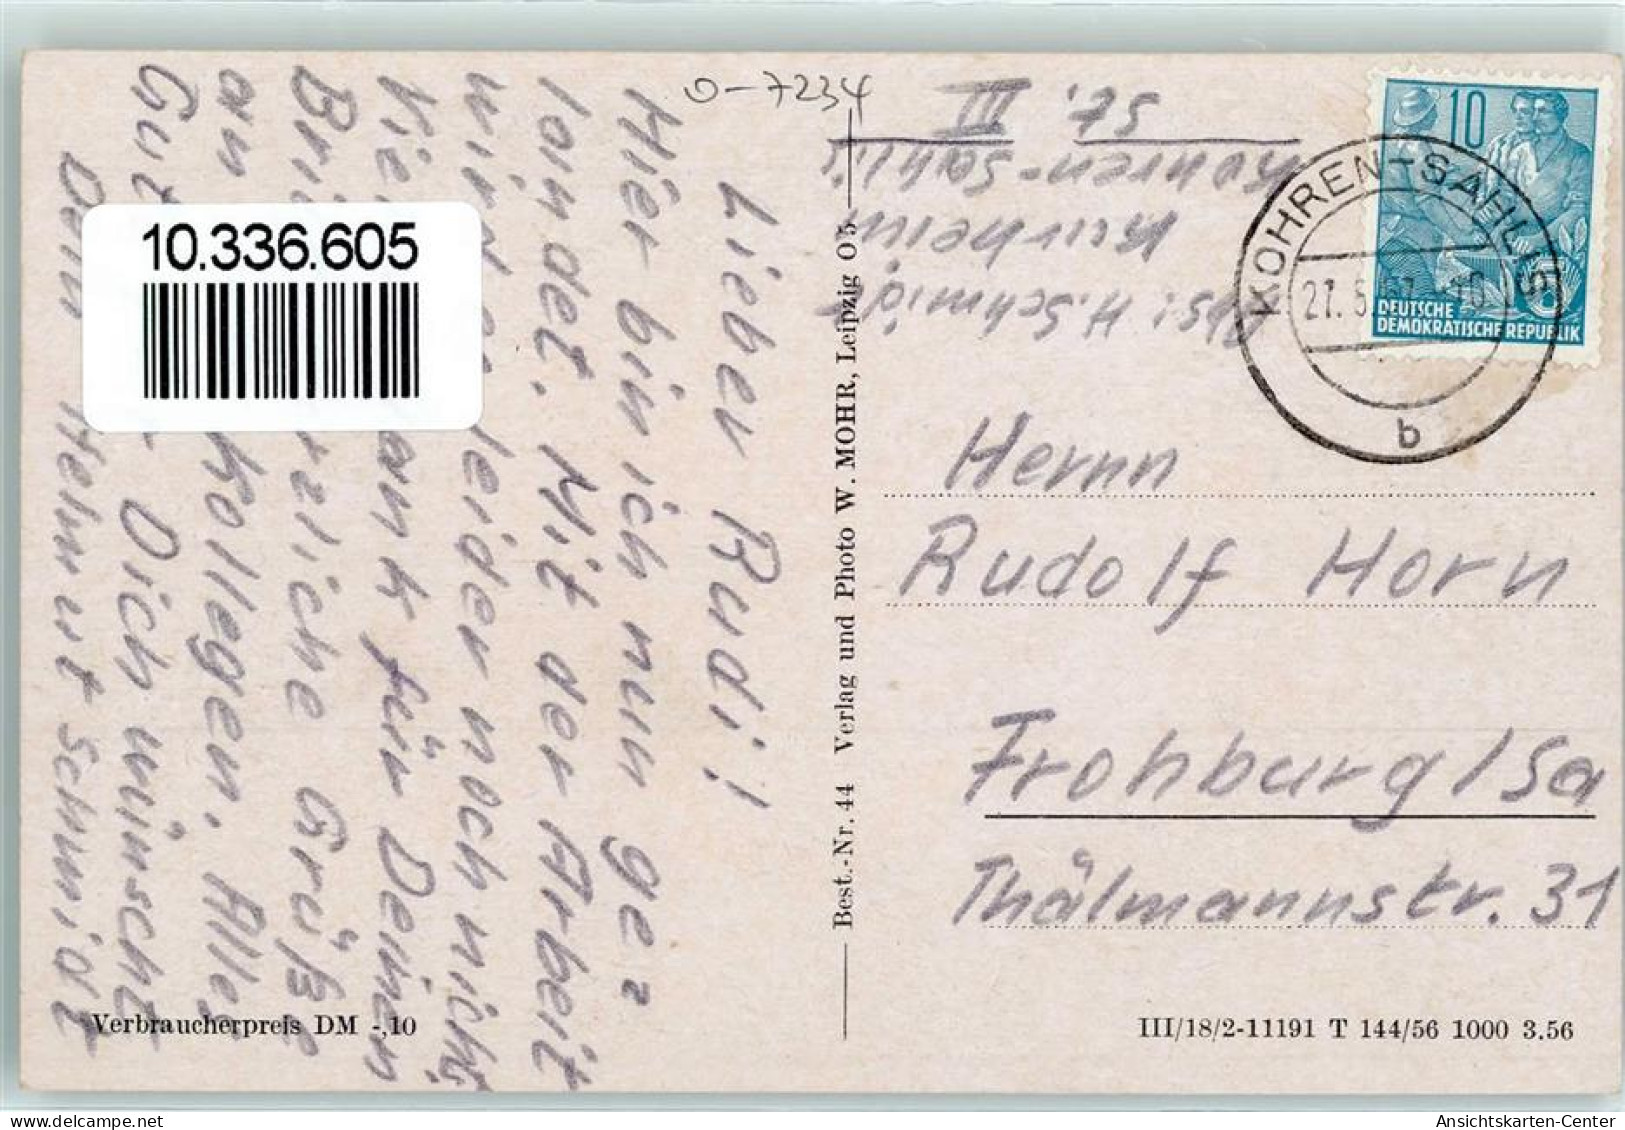 O-7234
Lieber Rudi!
Hier bin ich nun ge=
landet. Mit der Arbeit
wird es leider noch nichts.
Dank für Deinen
Herzliche Grüße
an Kollegen. Alles
Gute Dich wünscht
Dein Helmut Schmidt
10.336.605
Verbraucherpreis DM -,10
Best.-Nr. 44 Verlag und Photo W. MOHR, Leipzig O 5
Abs: H. Schmidt
Kurheim
Kohren-Sahlis
St. III
10
DEUTSCHE
DEMOKRATISCHE REPUBLIK
KOHREN-SAHLIS
b
Herrn
Rudolf Horn
Frohburg/Sa
Thälmannstr. 31
III/18/2-11191 T 144/56 1000 3.56
Ansichtskarten-Center